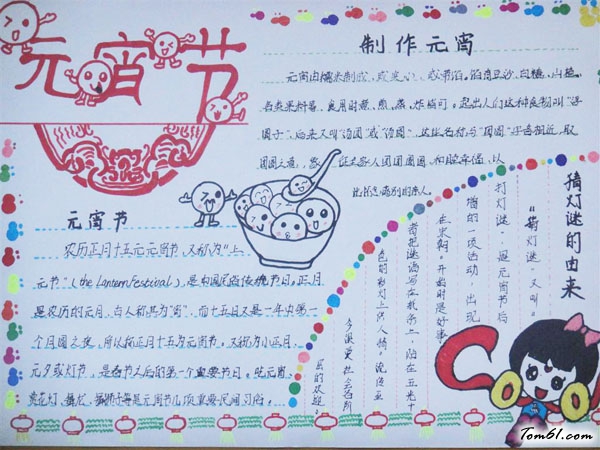 元宵节
制作元宵
元宵由糯米制成，或实心，或带馅，馅有豆沙、白糖、山楂、
各类果料等，食用时煮、煎、蒸、炸皆可。起出人们这种食物叫“浮
圆子”，后来又叫“汤团”或“汤圆”，这些名称与“团圆”字音相近，取
团圆之意，象征全家人团团圆圆，和睦幸福，以
此怀念离别的亲人。
元宵节
农历正月十五元元宵节，又称为“上
元节”（the Lantern Festival），是中国民俗传统节日。正月
是农历的元月，古人称其为“宵”，而十五日又是一年中第一
个月圆之夜，所以称正月十五为元宵节。又称为小正月、
元夕或灯节，是春节之后的第一个重要节日。吃元宵、
赏花灯、舞龙、舞狮子等是元宵节几项重要民间习俗。
猜灯谜的由来
“猜灯谜”又叫“
打灯谜”是元宵节后
增的一项活动，出现
在宋朝。开始时是好事
者把谜语写在纸条上，贴在五光十
色的彩灯上供人猜。
今深受社会各阶
层的欢迎。
Tom61.com